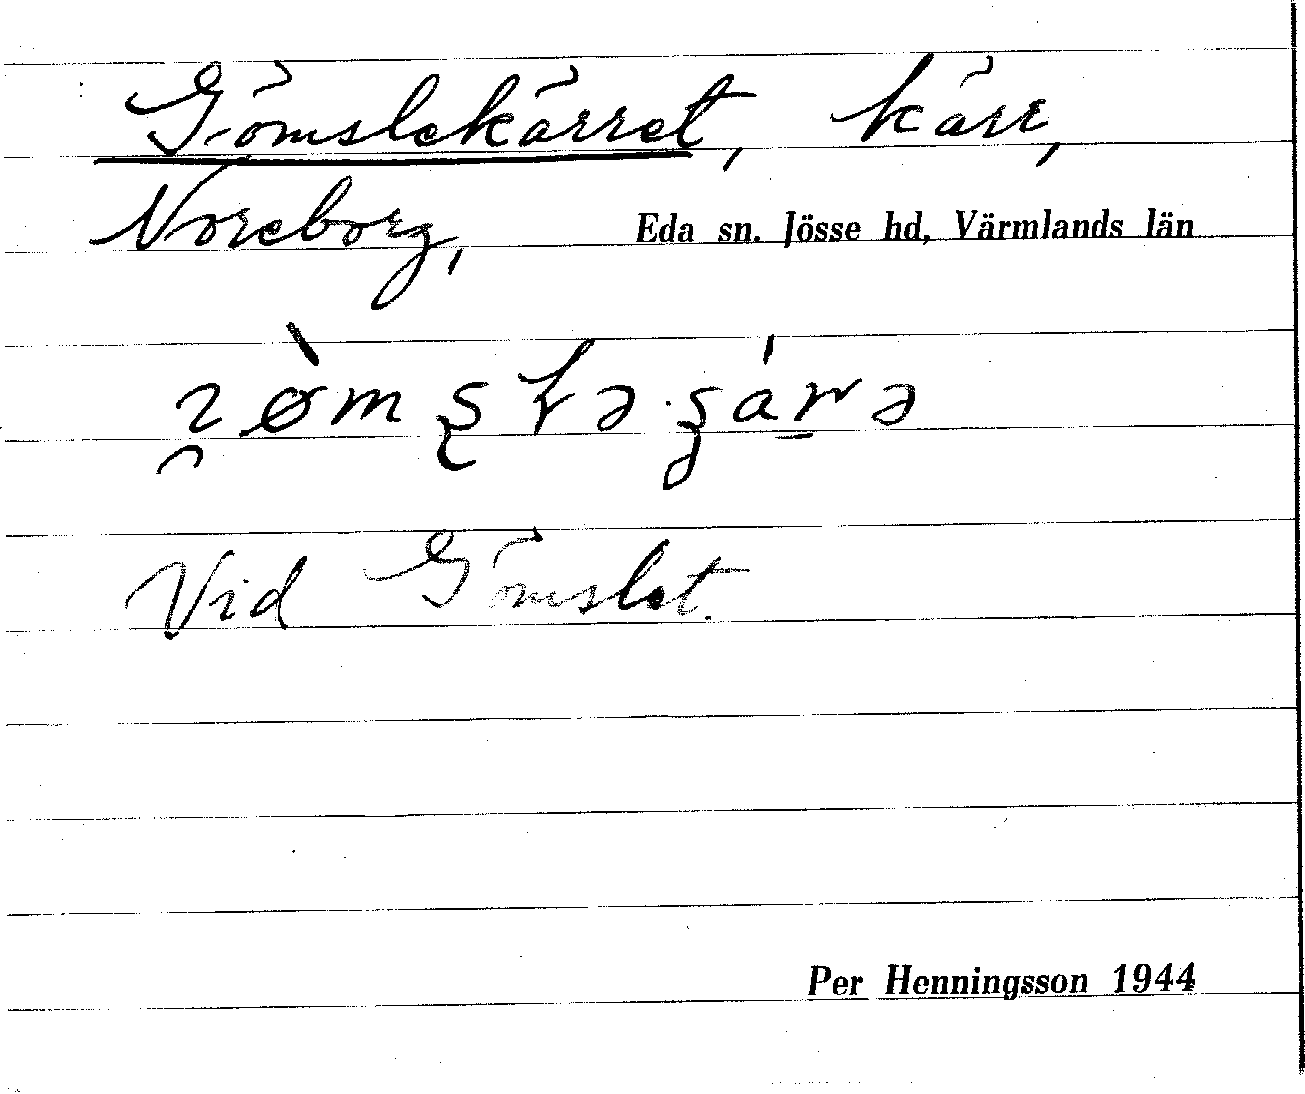 Gömslekärret, kärr,
Noreborg, Eda sn. Jösse hd, Värmlands län
Vid Gömslet.
Per Henningsson 1944